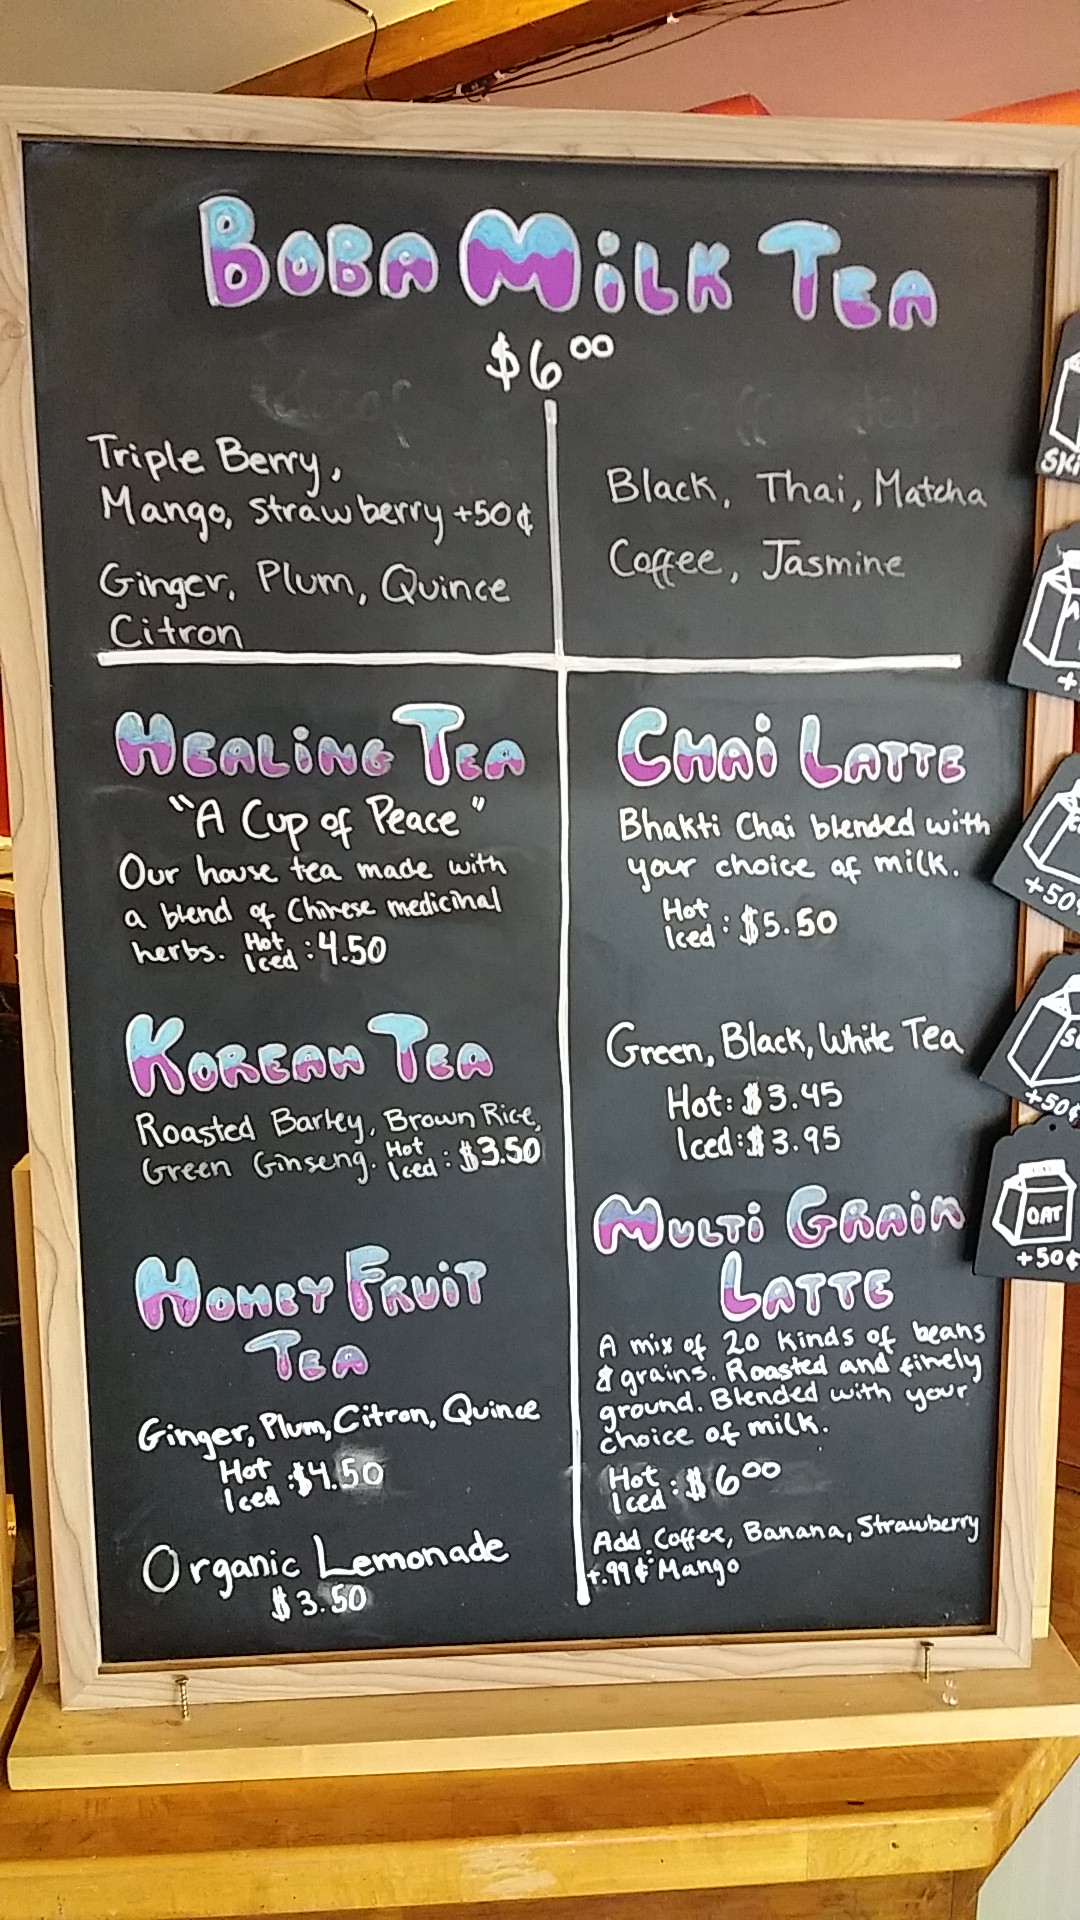 BOBA MILK TEA
$6.00
Triple Berry,
Mango, Strawberry +50¢
Ginger, Plum, Quince
Citron
Black, Thai, Matcha
Coffee, Jasmine
HEALING TEA
"A Cup of Peace"
Our house tea made with
a blend of Chinese medicinal
herbs. Hot Iced : 4.50
KOREAN TEA
Roasted Barley, Brown Rice,
Green Ginseng. Hot Iced : $3.50
HONEY FRUIT
TEA
Ginger, Plum, Citron, Quince
Hot
Iced : $4.50
Organic Lemonade
$3.50
CHAI LATTE
Bhakti Chai blended with
your choice of milk.
Hot
Iced : $5.50
Green, Black, White Tea
Hot: $3.45
Iced: $3.95
MULTI GRAIN
LATTE
A mix of 20 kinds of beans
& grains. Roasted and finely
ground. Blended with your
choice of milk.
Hot
Iced : $6.00
Add Coffee, Banana, Strawberry
+.99¢ Mango
+50¢
+50¢
OAT
+50¢